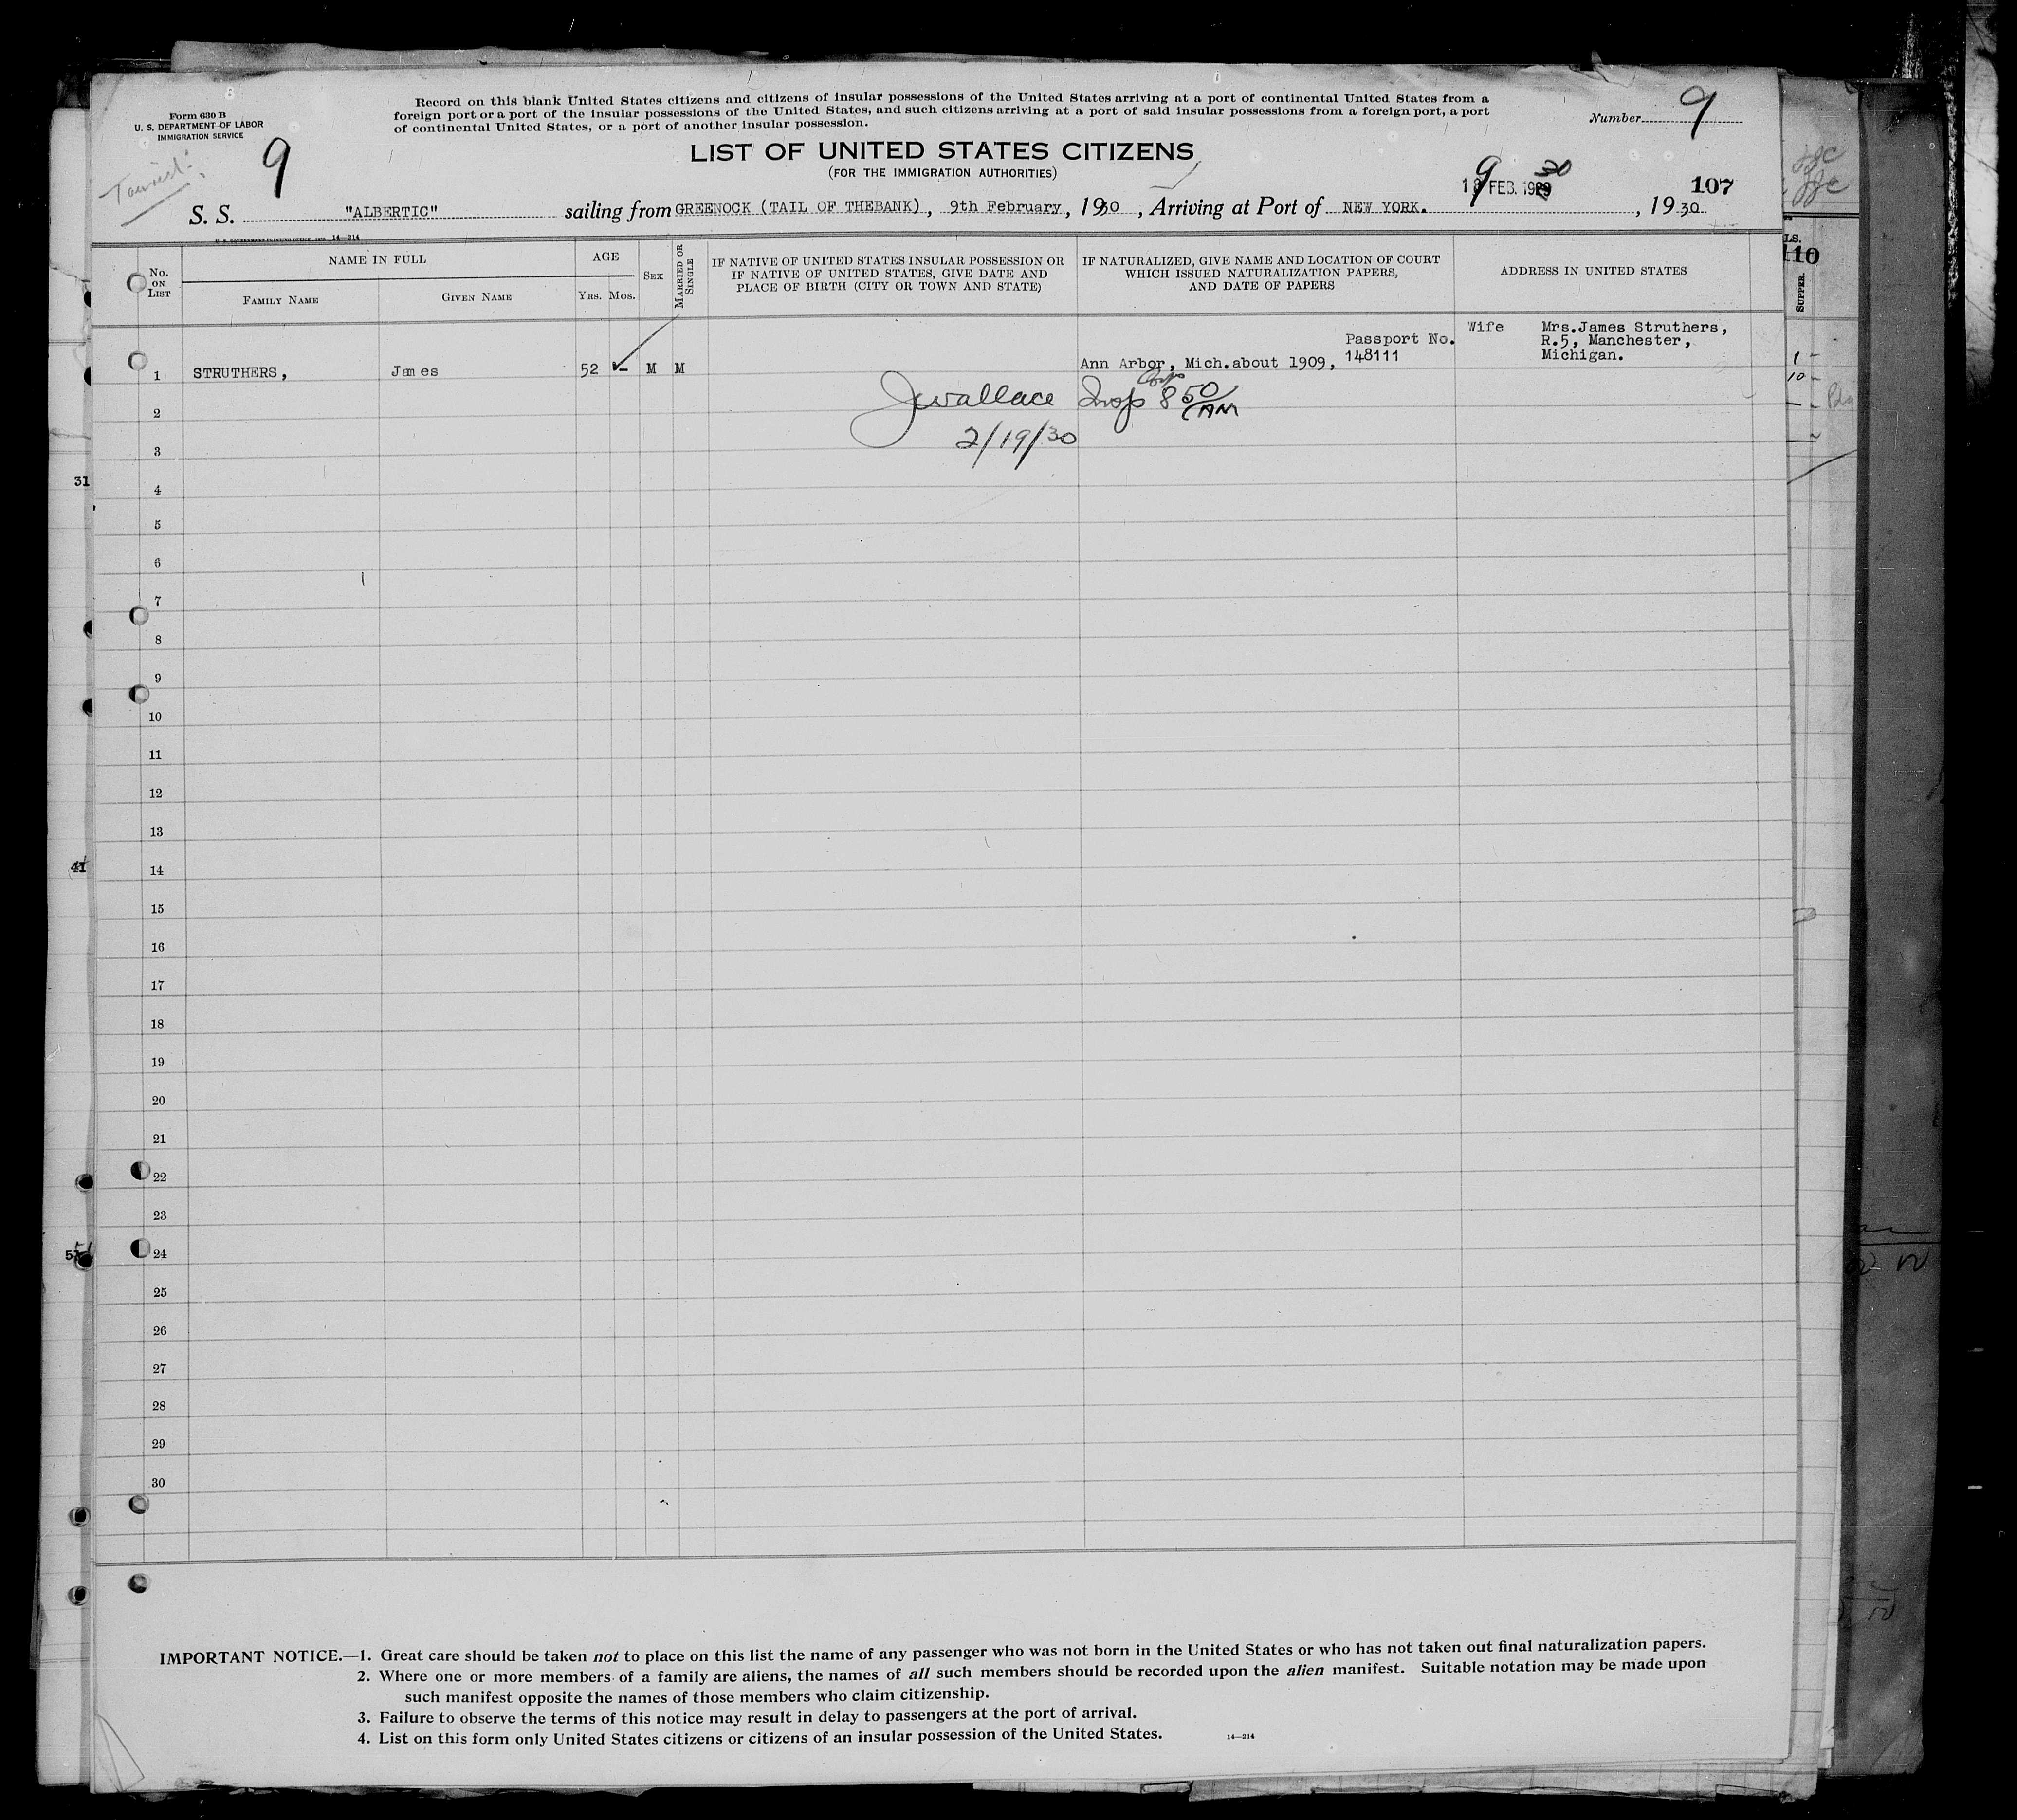 Form 630 B
U. S. DEPARTMENT OF LABOR
IMMIGRATION SERVICE
Record on this blank United States citizens and citizens of insular possessions of the United States arriving at a port of continental United States from a
foreign port or a port of the insular possessions of the United States, and such citizens arriving at a port of said insular possessions from a foreign port, a port
of continental United States, or a port of another insular possession.
Number 9
9
Tourist
LIST OF UNITED STATES CITIZENS
(FOR THE IMMIGRATION AUTHORITIES)
107
S. S. "ALBERTIC" sailing from GREENOCK (TAIL OF THEBANK), 9th February, 1930, Arriving at Port of NEW YORK. 19 FEB. 1930, 1930
14—214
No. ON LIST
NAME IN FULL
FAMILY NAME
GIVEN NAME
AGE
YRS. MOS.
SEX
MARRIED OR SINGLE
IF NATIVE OF UNITED STATES INSULAR POSSESSION OR
IF NATIVE OF UNITED STATES, GIVE DATE AND
PLACE OF BIRTH (CITY OR TOWN AND STATE)
IF NATURALIZED, GIVE NAME AND LOCATION OF COURT
WHICH ISSUED NATURALIZATION PAPERS,
AND DATE OF PAPERS
ADDRESS IN UNITED STATES
110
SUPPER.
1 STRUTHERS, James 52 - M M Ann Arbor, Mich.about 1909, Passport No.
148111
Wife Mrs.James Struthers,
R.5, Manchester,
Michigan.
JWallace Insp 8 50 AM
2/19/30
2
3
4
5
6
7
8
9
10
11
12
13
14
15
16
17
18
19
20
21
22
23
24
25
26
27
28
29
30
31
41
IMPORTANT NOTICE.—1. Great care should be taken not to place on this list the name of any passenger who was not born in the United States or who has not taken out final naturalization papers.
2. Where one or more members of a family are aliens, the names of all such members should be recorded upon the alien manifest. Suitable notation may be made upon
such manifest opposite the names of those members who claim citizenship.
3. Failure to observe the terms of this notice may result in delay to passengers at the port of arrival.
4. List on this form only United States citizens or citizens of an insular possession of the United States.
14—214